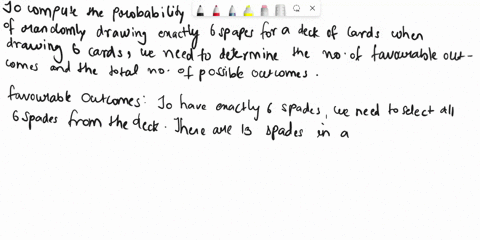 To compute the probability
of randomly drawing exactly 6 spapes for a deck of cards when
drawing 6 cards, we need to determine the no. of favourable out-
comes and the total no. of possible outcomes.
favourable outcomes: To have exactly 6 spades, we need to select all
6 spades from the deck. There are 13 spades in a